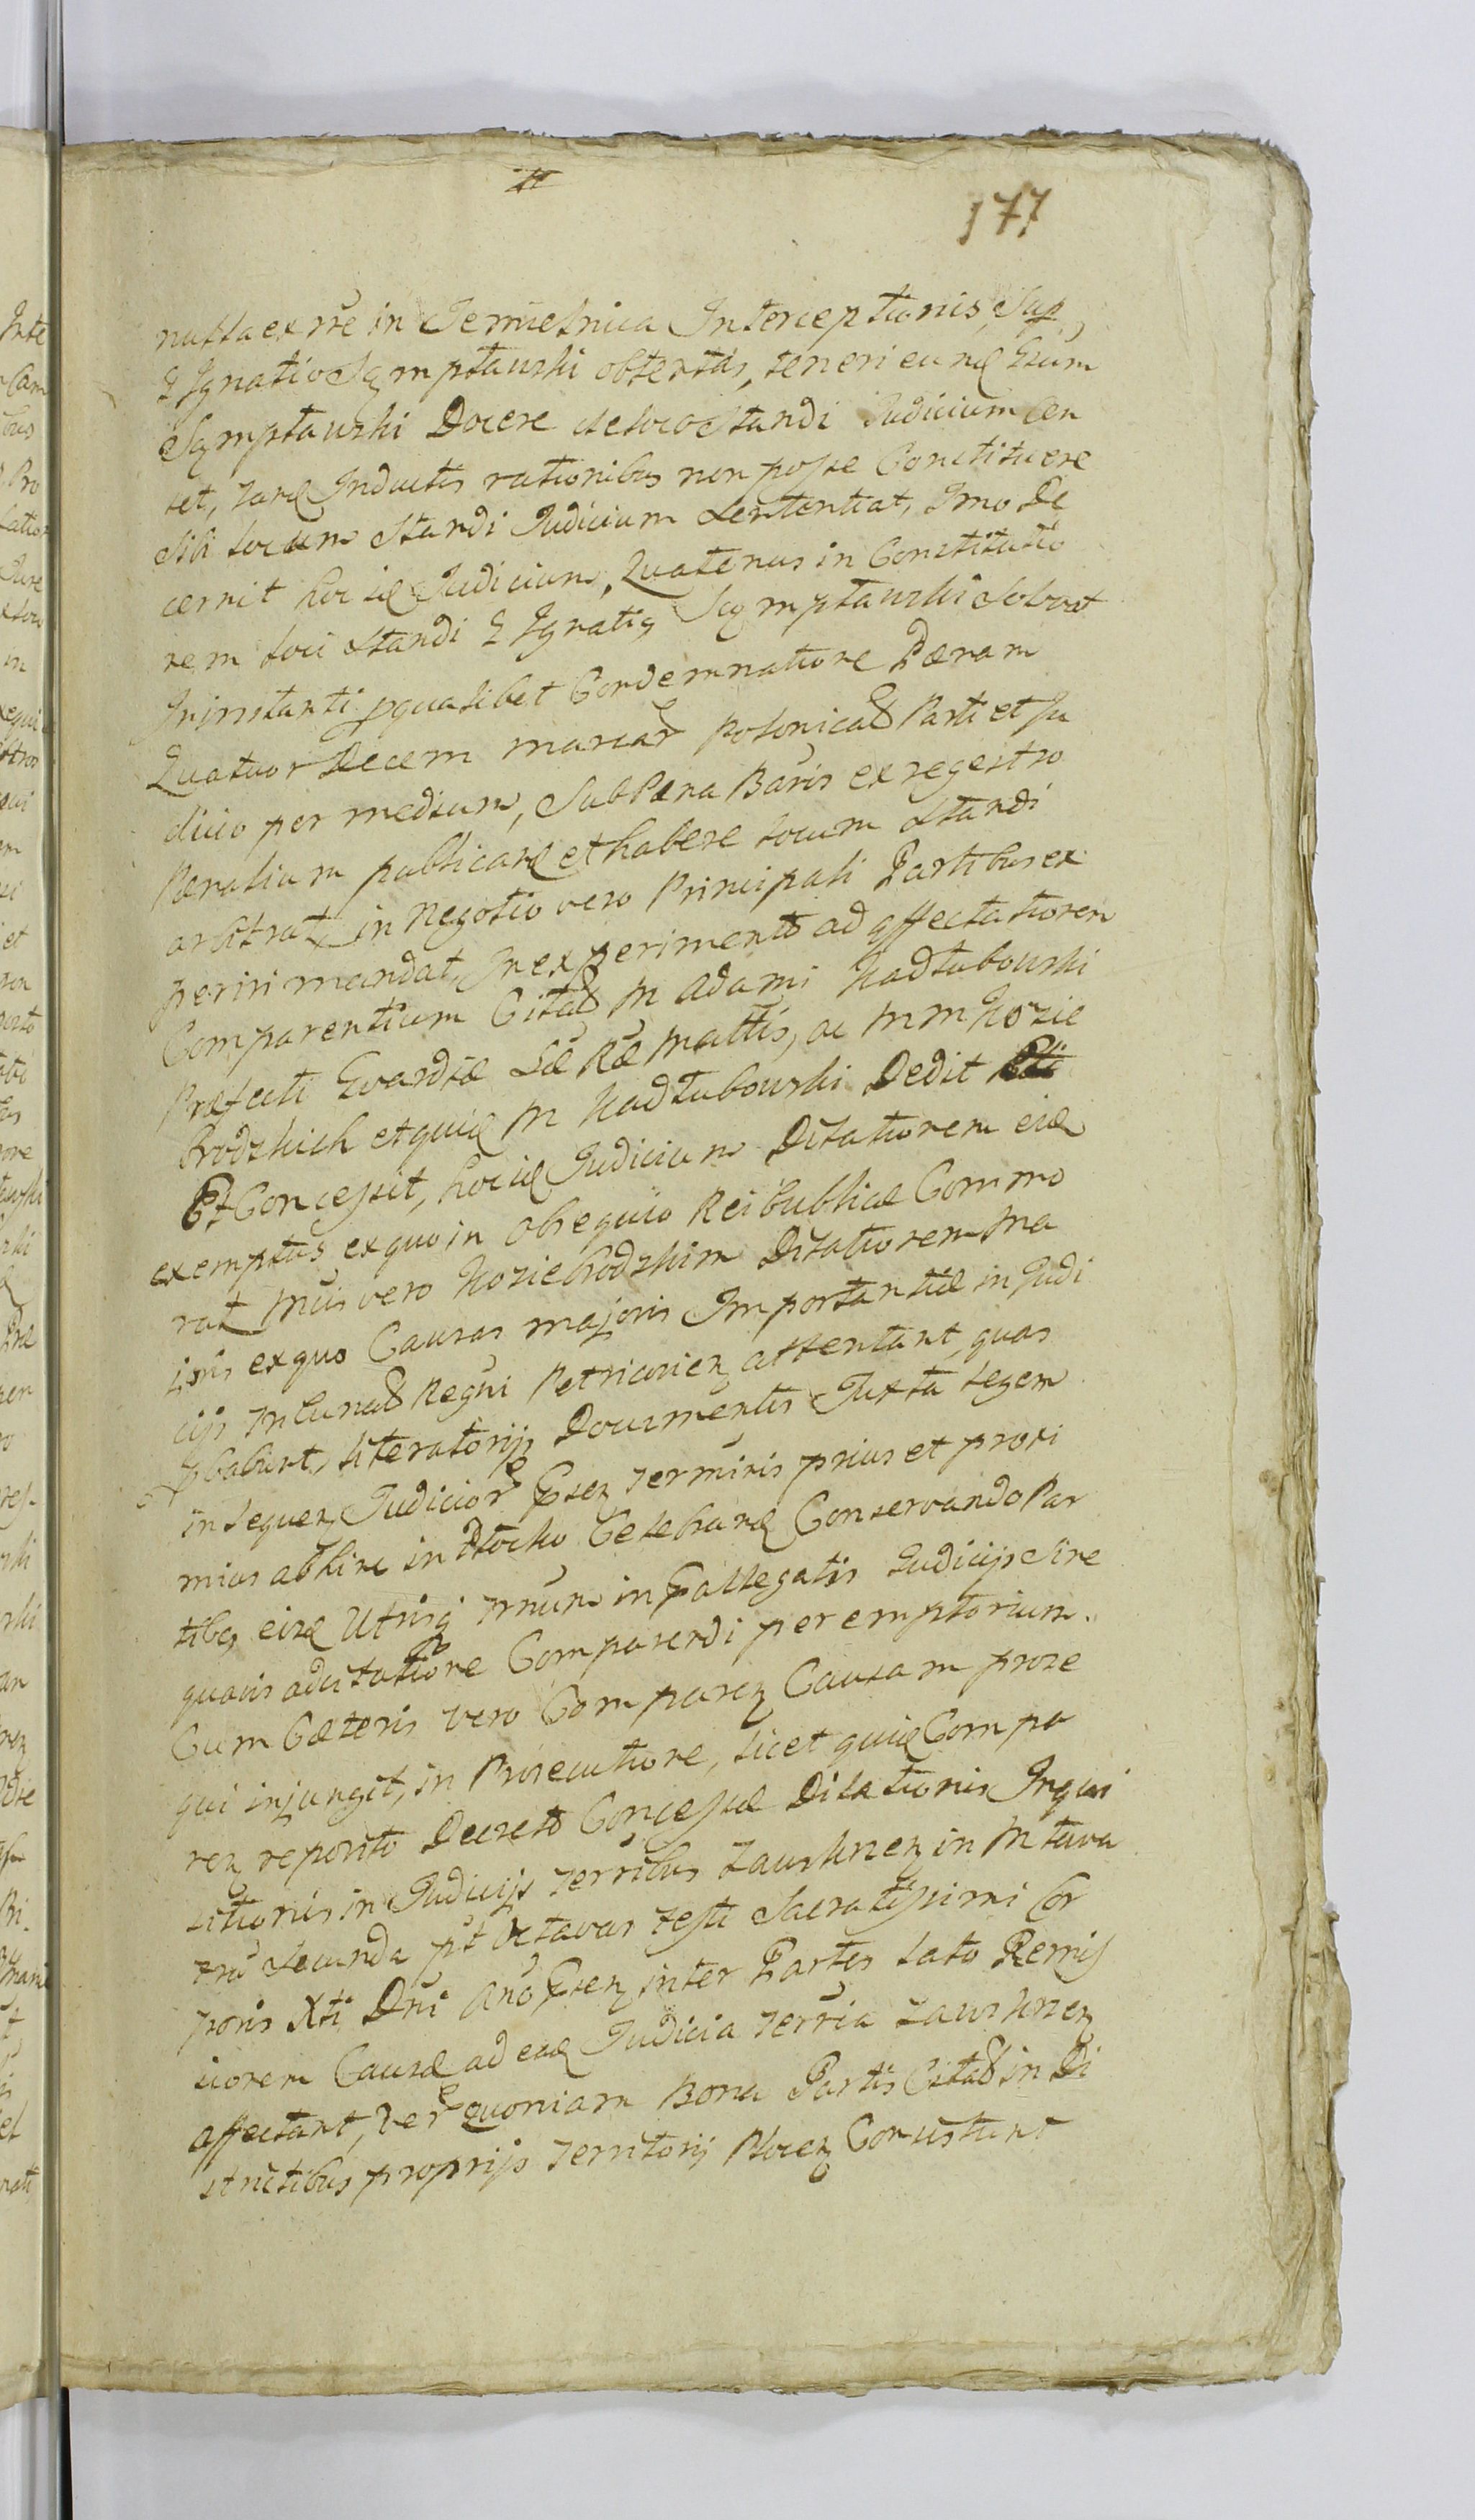 177
nulla ex rñe in Jemielnica Interceptionis Sup
G Ignatio Sęmptawski obtentas, teneri eund Gsum
Sęmptawski Docere de loco Standi Judicium Cen
set, Inductis rationibus non posse Constituere
Sibi locum Standi Judicium Sententiat, Imo De
cernit hocce Judicium, Quatenus in Constitutio
nem loci Standi G Ignatig Sęmptawski Solvat
In instanti pqualibet Condemnatione Pænam
Quatuor Decem marcar Polonicał Parti et Ju
dicio per medium, Sub Pæna Banis ex regestro
Pænalium publicand et habere locum Standi
arbitratr in Negotio vero Principali Partibus ex
periri mandat, In experimento ad affectationem
Comparentium Citał M Adami Nadłubowski
Præfecti Gvardiæ Sæ Ræ Mattis, ac MM Kozie
brodzkich et quid M Nadłubowski Dedit
Et Concessit, hocce Judicium Dilationem eid
exemptus ex quo in obsequio Reipublicæ Commo
rat Mcis vero Koziebrodzkim Dilationem Ma
joris ex quo Causas majoris Importantiæ in Judi
cijs Tribunał Regni Petricovien attentant, quas
pbabunt, literatorijs Documentis Juxta legem
in sequen Judicior Gsen Terminis prius et proxi
mius abhinc in Płocko Celebrand Conservando Par
tibg eisd Utrisq Trnum in Gallegatis Judicijs Sine
quavis adcitatione Comparendi peremptorium.
Cum Cæteris vero Comparen Causam prose
qui injungit, in Prosecutione, licet quid Compa
ren reposito Decreto Concessæ Dilationis Inqui
sitionis in Judicijs Terribus Zawskrzen in Mława
Fria Secunda pt Octavas Festi Sacratissimi Cor
poris Xti Dni Ano Gsen inter Partes lato Remis
sionem Causæ ad ead Judicia Terria Zawskrzen
affectant, Ver quoniam Bona Partis Citał in Di
strictibus proprijs Territorij Płocen Consistunt